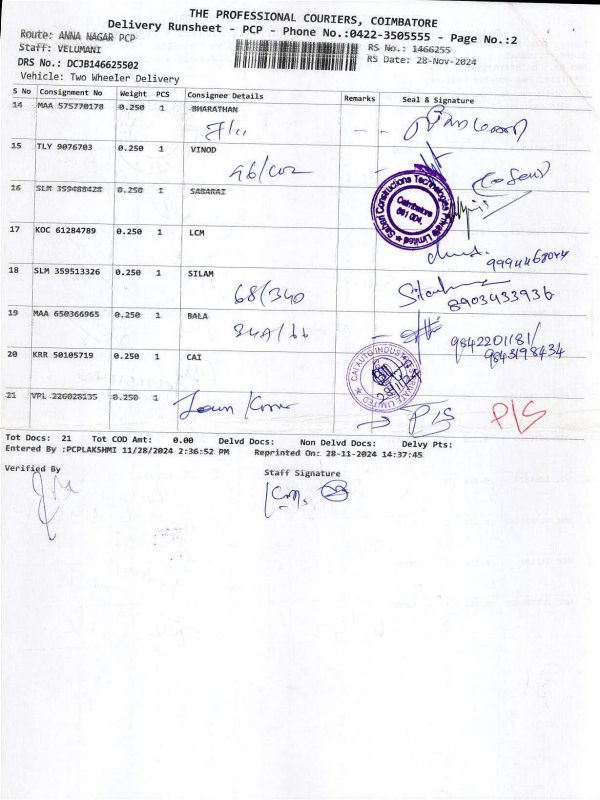 THE PROFESSIONAL COURIERS, COIMBATORE
Delivery Runsheet - PCP - Phone No.:0422-3505555 - Page No.:2
Route: ANNA NAGAR PCP
Staff: VELUMANI
RS No.: 1466255
DRS No.: DCJB146625502
RS Date: 28-Nov-2024
Vehicle: Two Wheeler Delivery
S No Consignment No Weight PCS Consignee Details Remarks Seal & Signature
14 MAA 575770178 0.250 1 BHARATHAN
15 TLY 9076703 0.250 1 VINOD
16 SLM 359488428 0.250 1 SABARAI
Coimbatore
641 004.
17 KOC 61284789 0.250 1 LCM
18 SLM 359513326 0.250 1 SILAM
68/340
8903433936
19 MAA 650366965 0.250 1 BALA
9842201181/
9843198434
20 KRR 50105719 0.250 1 CAI
21 VPL 226028135 0.250 1
P/S P/S
Tot Docs: 21 Tot COD Amt: 0.00 Delvd Docs: Non Delvd Docs: Delvy Pts:
Entered By :PCPLAKSHMI 11/28/2024 2:36:52 PM Reprinted On: 28-11-2024 14:37:45
Verified By
Staff Signature